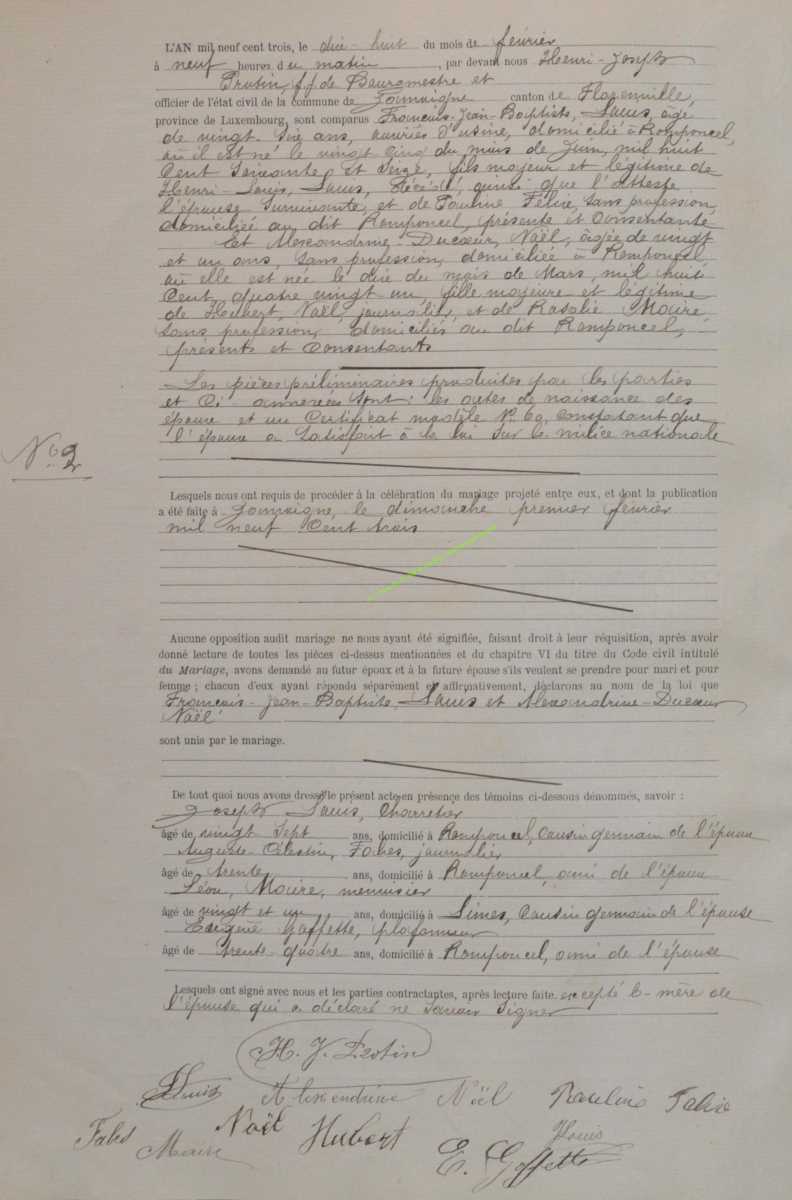 L'AN mil neuf cent trois, le dix-huit du mois de février
à neuf heures du matin, par devant nous Henri-Joseph
Protin, f.f. de Bourgmestre et
officier de l'état civil de la commune de Jamoigne canton de Florenville,
province de Luxembourg, sont comparus François-Jean-Baptiste, Louis, âgé
de vingt-six ans, ouvrier d'usine, domicilié à Romponcel,
où il est né le vingt cinq du mois de Juin, mil huit
cent soixante et seize, fils majeur et légitime de
Henri-Louis, Louis, décédé, ainsi que l'atteste
l'épouse survivante, et de Pauline Félix, sans profession,
domiciliée au dit Romponcel, présente et consentante
Et Alexandrine-Ducœur, Noël, âgée de vingt
et un ans, sans profession, domiciliée à Romponcel,
où elle est née le dix du mois de Mars, mil huit
cent quatre vingt un fille majeure et légitime
de Hubert, Noël, journalier, et de Rosalie Maire,
sans profession, domiciliés au dit Romponcel,
présents et consentants
Les pièces préliminaires produites par les parties
et ci-annexées sont: les actes de naissance des
époux et un certificat modèle N° 69 constatant que
l'époux a satisfait à la loi sur la milice nationale
N° 2
Lesquels nous ont requis de procéder à la célébration du mariage projeté entre eux, et dont la publication
a été faite à Jamoigne, le dimanche premier février
mil neuf cent trois
Aucune opposition audit mariage ne nous ayant été signifiée, faisant droit à leur réquisition, après avoir
donné lecture de toutes les pièces ci-dessus mentionnées et du chapitre VI du titre du Code civil intitulé
du Mariage, avons demandé au futur époux et à la future épouse s'ils veulent se prendre pour mari et pour
femme ; chacun d'eux ayant répondu séparément et affirmativement, déclarons au nom de la loi que
François-Jean-Baptiste, Louis et Alexandrine-Ducœur
Noël
sont unis par le mariage.
De tout quoi nous avons dressé le présent acte en présence des témoins ci-dessous dénommés, savoir :
Joseph Louis, Charretier
âgé de vingt sept ans, domicilié à Romponcel, cousin germain de l'époux
Auguste-Célestin, journalier
âgé de trente ans, domicilié à Romponcel, ami de l'époux
Léon, Maire, menuisier
âgé de vingt et un ans, domicilié à Limes, cousin germain de l'épouse
Eugène Goffette, plafonneur
âgé de trente-quatre ans, domicilié à Romponcel, ami de l'épouse
Lesquels ont signé avec nous et les parties contractantes, après lecture faite excepté la mère de
l'épouse qui a déclaré ne savoir signer
H. J. Protin
Louis Alexandrine Noël Pauline Félix
Noël Hubert Louis
Maire E. Goffette